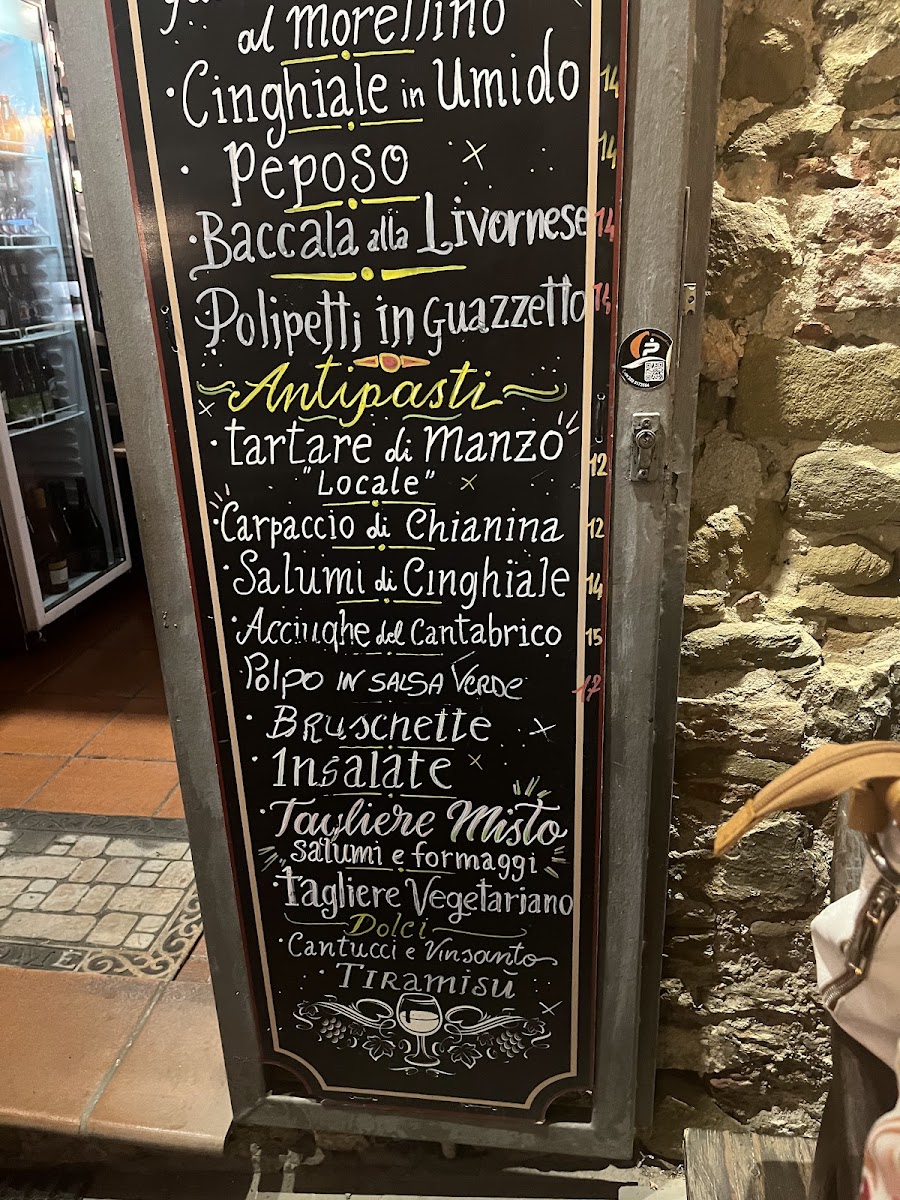 al Morellino
Cinghiale in Umido 14
Peposo 14
Baccala alla Livornese 14
Polipetti in Guazzetto 14
Antipasti
Tartare di Manzo
"Locale" 12
Carpaccio di Chianina 12
Salumi di Cinghiale 14
Acciughe del Cantabrico 15
Polpo in salsa Verde 17
Bruschette
Insalate
Tagliere Misto
salumi e formaggi
Tagliere Vegetariano
Dolci
Cantucci e Vinsanto
Tiramisù